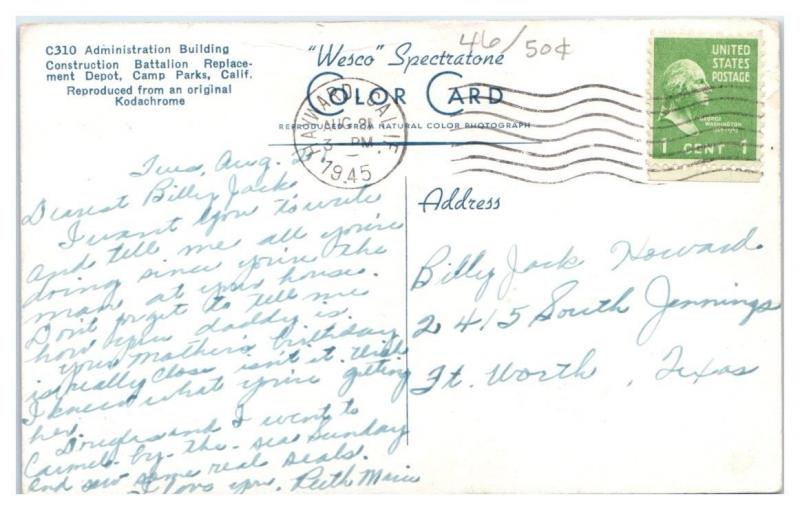 C310 Administration Building
Construction Battalion Replace-
ment Depot, Camp Parks, Calif.
Reproduced from an original
Kodachrome
"Wesco" Spectratone
COLOR CARD
REPRODUCED FROM NATURAL COLOR PHOTOGRAPH
46/50¢
HAYWARD CALIF.
AUG
3 PM
1945
UNITED
STATES
POSTAGE
GEORGE
WASHINGTON
1789-1797
1 CENT 1
Tues, Aug. 21
Dearest Billy Jack
I want you to write
and tell me all you're
doing since you're the
man at your house.
Don't forget to tell me
how your daddy is.
Your mother's birthday
is really close isn't it.
I know what you're getting
her.
Douglas and I went to
Carmel-by-the-sea Sunday
and saw some real seals.
I love you. Ruth Marie
Address
Billy Jack Howard
2415 South Jennings
Ft. Worth, Texas